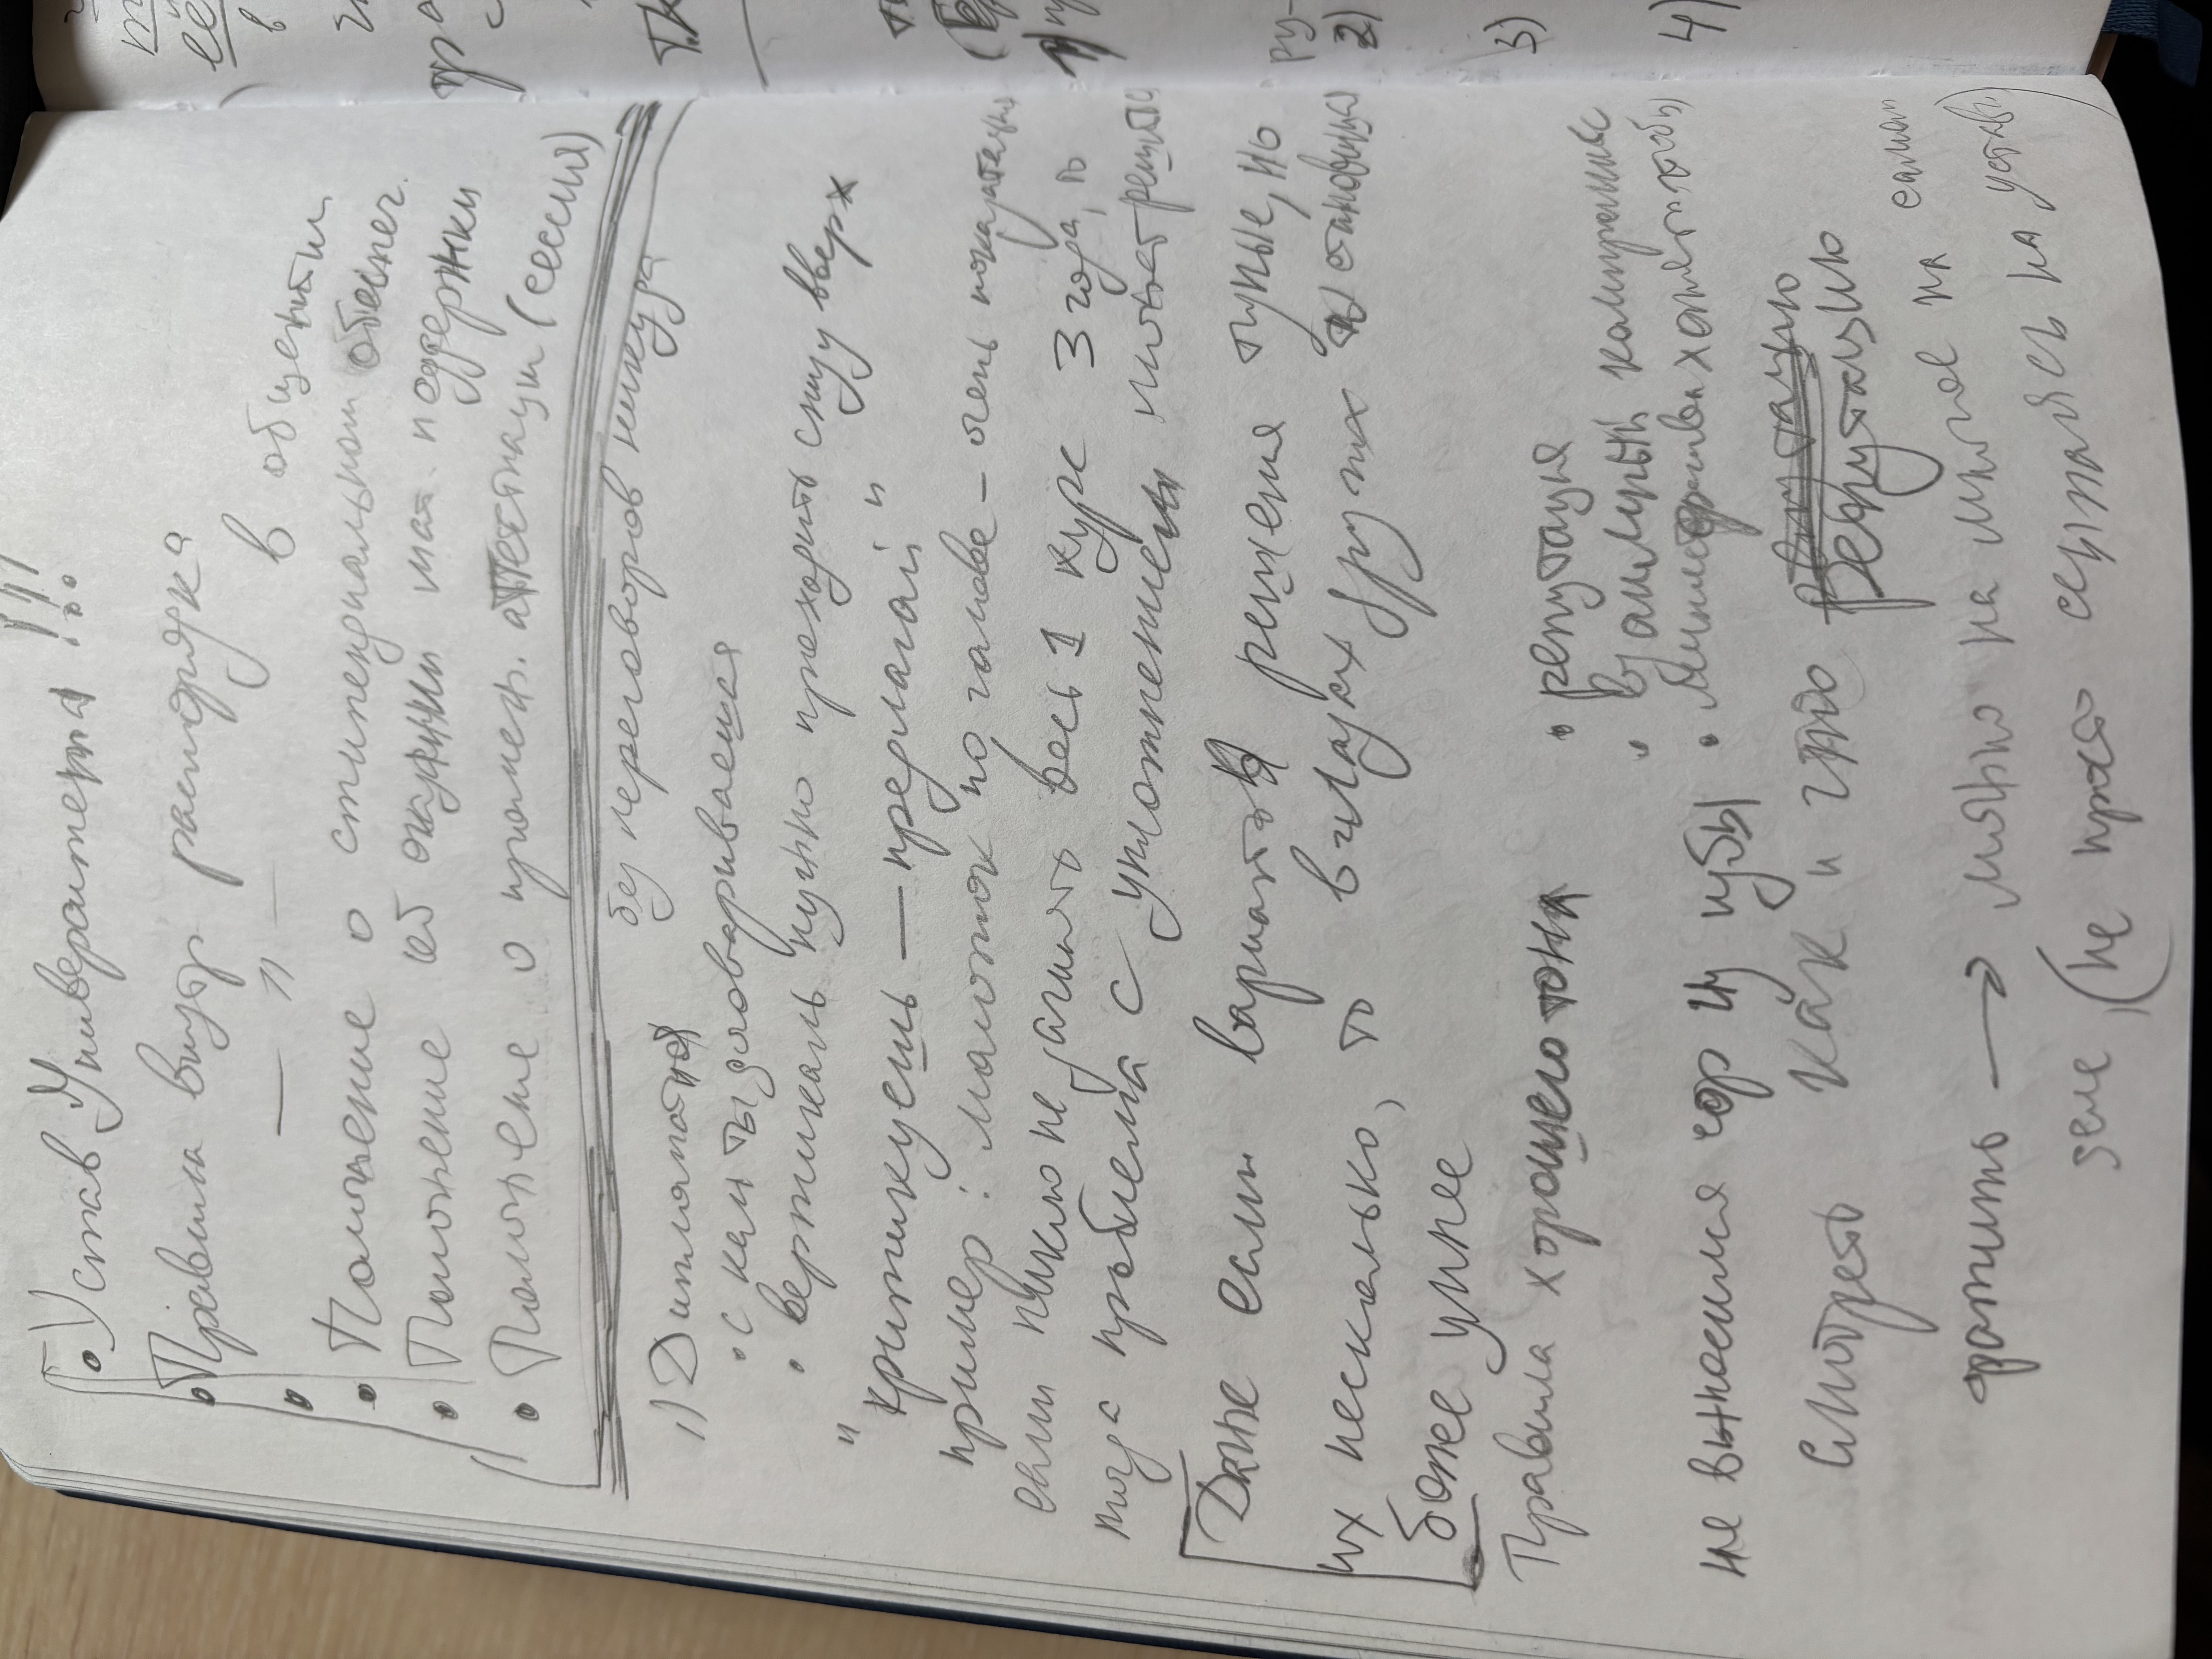 • Устав Университета !!!
• Правила внутр распорядка
• — 〃 — в общежитии
• Положение о стипендиальном обеспеч.
• Положение об оказании мат. поддержки
• Положение о промеж. аттестации (сессия)
без переговоров никуда
1) Дипломатия
• с кем ты договариваешься
• вертикаль нужно проходить снизу вверх
"критикуешь — предлагай"
пример: молоток по голове – очень показательно
если никого не зачислять весь 1 курс 3 года, то
тогда проблема с уплотнением может решиться
Даже если варианты решения тупые, но
их несколько, то в глазах других ты становишься
более умнее
Правила хорошего тона
• репутация
• взаимный компромисс
• хотят чтобы
не выносился сор из избы
Смотреть как и что репутацию
репутацию
тратить → можно на многое на самом
деле, (не просто ссылаясь на устав)